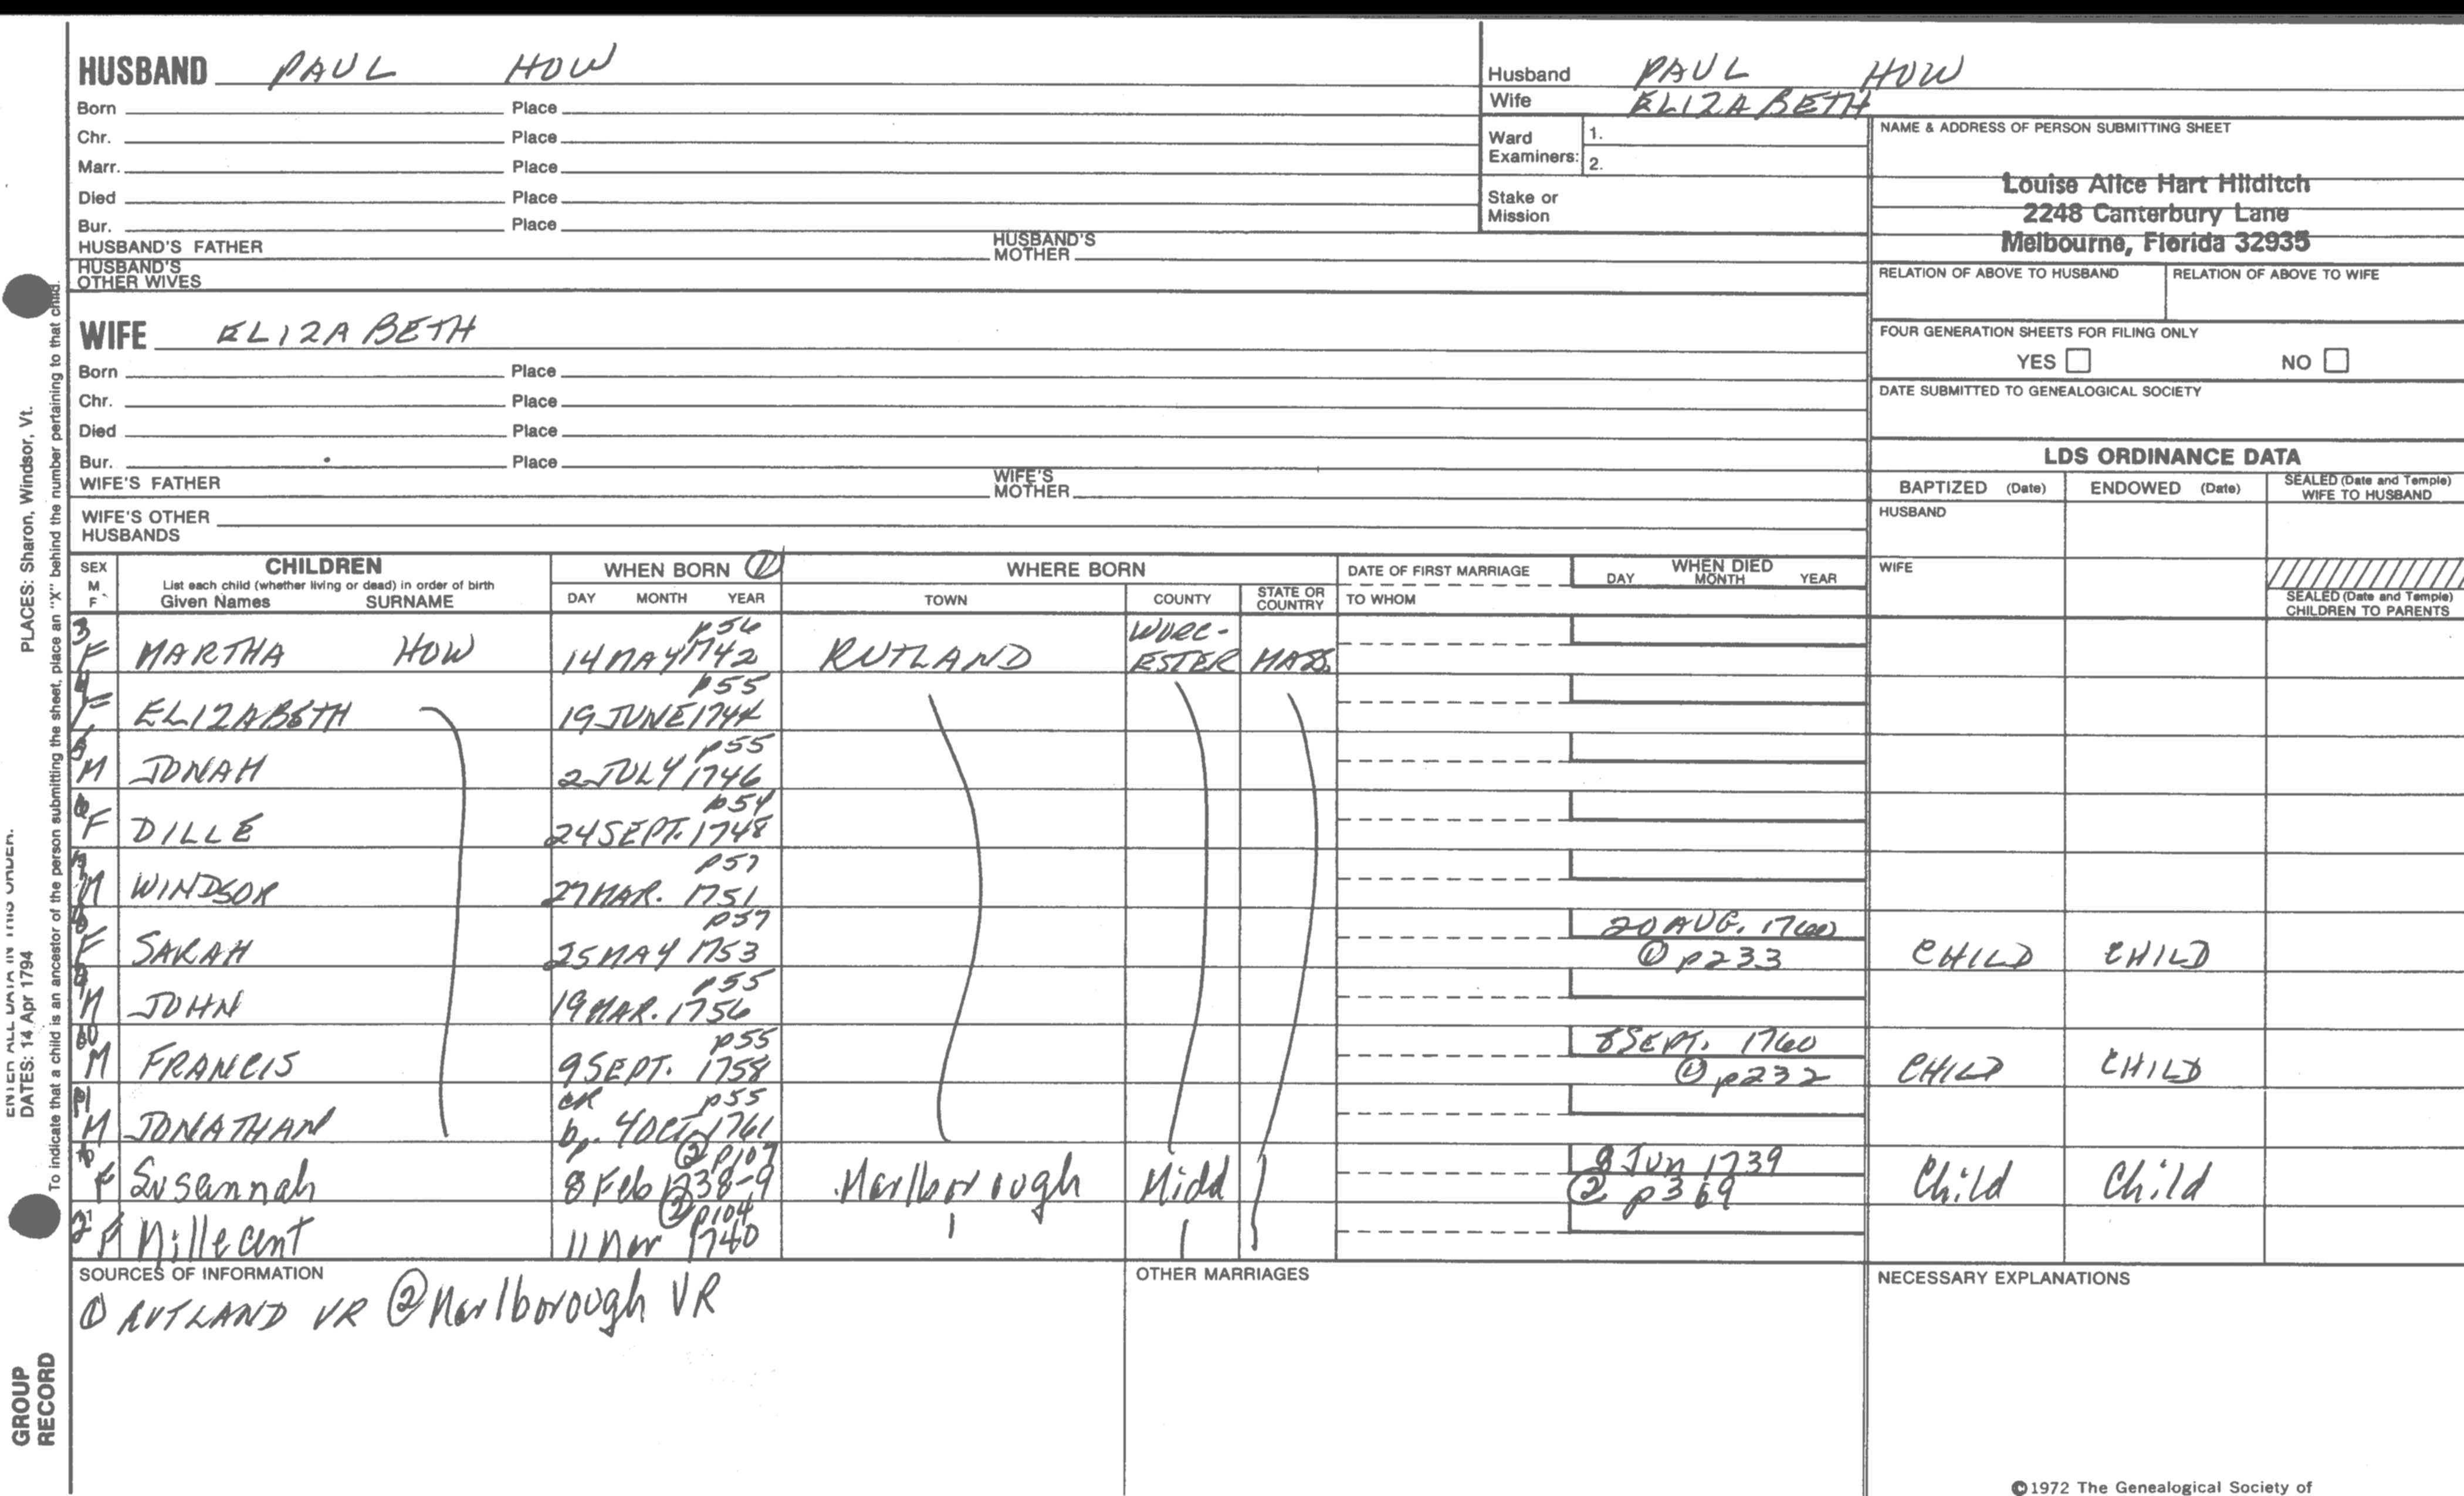 HUSBAND PAUL HOW
Born Place
Chr. Place
Marr. Place
Died Place
Bur. Place
HUSBAND'S FATHER HUSBAND'S MOTHER
HUSBAND'S OTHER WIVES
WIFE ELIZABETH
Born Place
Chr. Place
Died Place
Bur. Place
WIFE'S FATHER WIFE'S MOTHER
WIFE'S OTHER HUSBANDS
Husband PAUL HOW
Wife ELIZABETH
Ward Examiners: 1.
2.
Stake or Mission
NAME & ADDRESS OF PERSON SUBMITTING SHEET
Louise Alice Hart Hilditch
2248 Canterbury Lane
Melbourne, Florida 32935
RELATION OF ABOVE TO HUSBAND RELATION OF ABOVE TO WIFE
FOUR GENERATION SHEETS FOR FILING ONLY
YES NO
DATE SUBMITTED TO GENEALOGICAL SOCIETY
LDS ORDINANCE DATA
BAPTIZED (Date) ENDOWED (Date) SEALED (Date and Temple) WIFE TO HUSBAND
HUSBAND
WIFE
SEALED (Date and Temple) CHILDREN TO PARENTS
SEX M F CHILDREN WHEN BORN ① WHERE BORN DATE OF FIRST MARRIAGE WHEN DIED
List each child (whether living or dead) in order of birth
Given Names SURNAME DAY MONTH YEAR TOWN COUNTY STATE OR COUNTRY TO WHOM DAY MONTH YEAR
3 F MARTHA HOW 14 MAY 1742 p56 RUTLAND WORC-ESTER MASS.
4 F ELIZABETH 19 JUNE 1744 p55
5 M JONAH 2 JULY 1746 p55
6 F DILLE 24 SEPT. 1748 p54
7 M WINDSOR 27 MAR. 1751 p57
8 F SARAH 25 MAY 1753 p57 20 AUG. 1760 ① p233 CHILD CHILD
9 M JOHN 19 MAR. 1756 p55
10 M FRANCIS 9 SEPT. 1758 p55 8 SEPT. 1760 ① p232 CHILD CHILD
11 M JONATHAN CR p55 bp. 4 OCT. 1761
1 F Susannah ② p107 8 Feb 1738-9 Marlborough Midd 9 Jun 1739 ② p369 Child Child
2 F Millecent ② p104 11 Mar 1740
SOURCES OF INFORMATION
① RUTLAND VR ② Marlborough VR
OTHER MARRIAGES
NECESSARY EXPLANATIONS
©1972 The Genealogical Society of
PLACES: Sharon, Windsor, Vt.
ENTER ALL DATA IN THIS ORDER.
DATES: 14 Apr 1794
To indicate that a child is an ancestor of the person submitting the sheet, place an "X" behind the number pertaining to that child.
GROUP RECORD